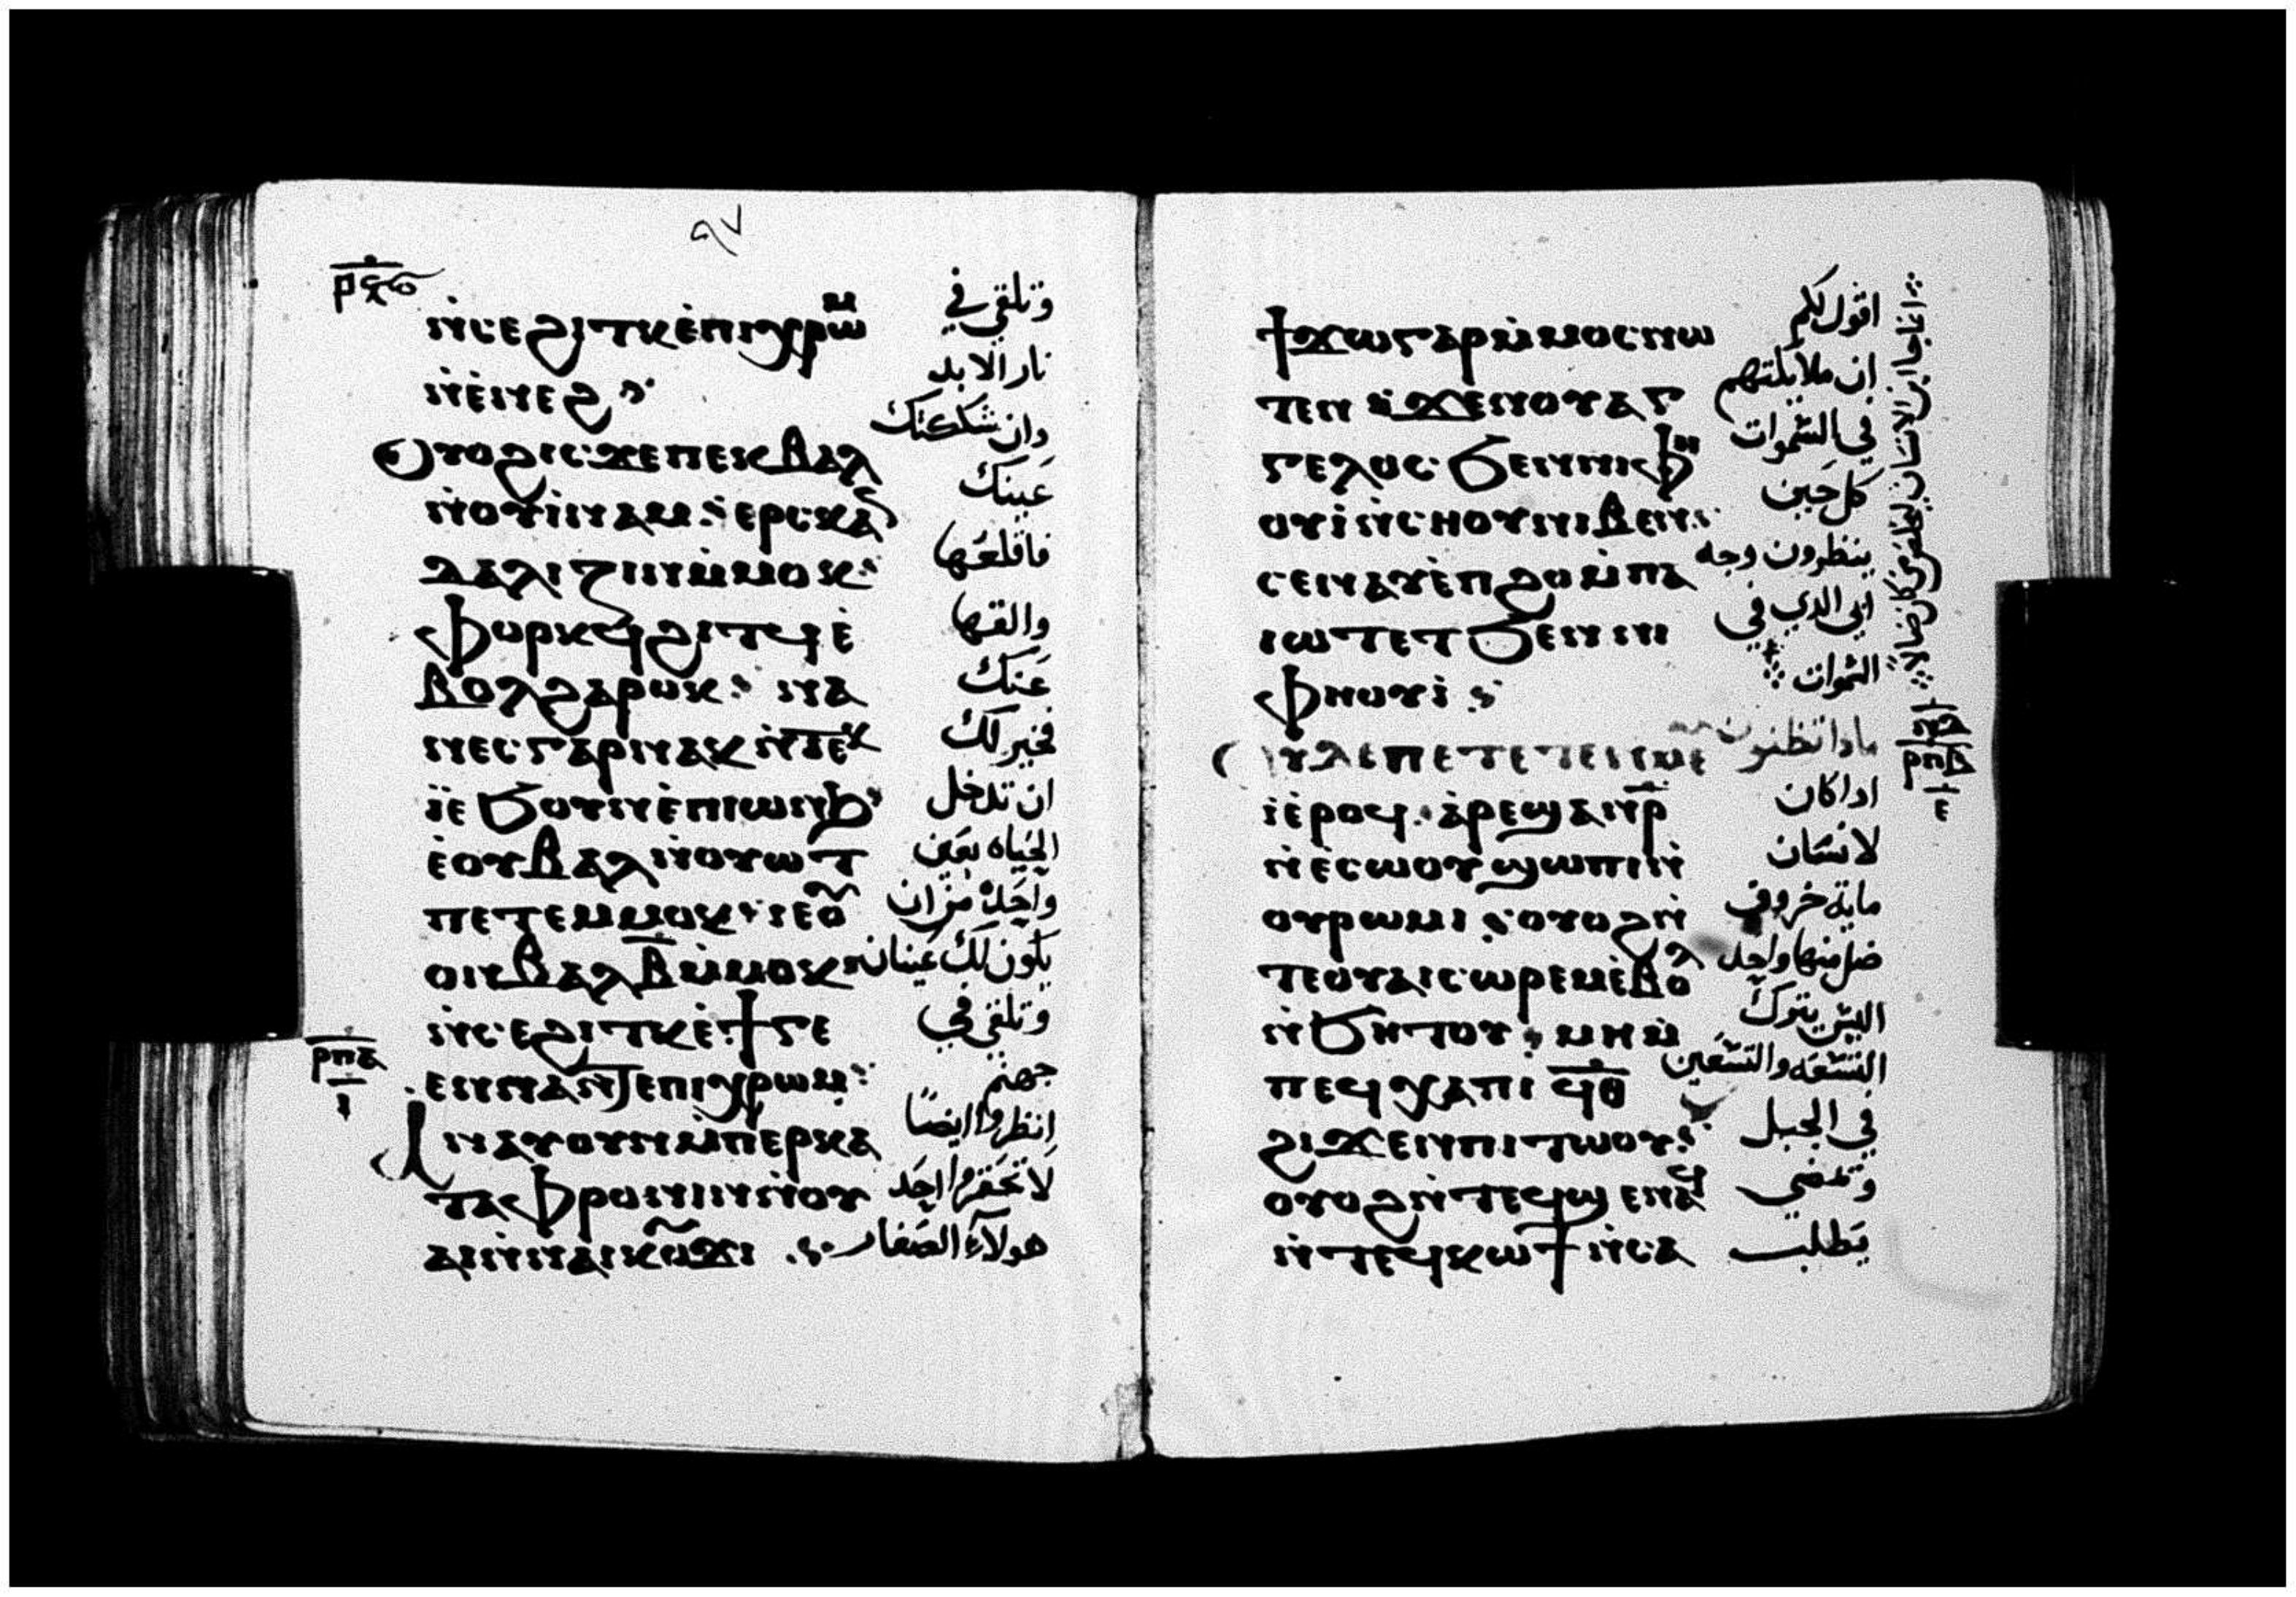 ⲣϥⲋ
ⲛ̇ⲥⲉϩⲓⲧⲕ ⲉ̇ⲡⲓⲭⲣⲱⲙ
وتلقي في
ⲛ̇ⲉ̇ⲛⲉϩ
نار الابد
ⲟⲩⲟϩ ⲓⲥϫⲉ ⲡⲉⲕⲃⲁⲗ
وان شككتك
ⲛ̇ⲟⲩⲓ̇ⲛⲁⲙ ⲉⲣⲥⲕⲁⲛ
عينك
ⲇⲁⲗⲓⲍⲓⲛ ⲙ̇ⲙⲟⲕ
فاقلعها
ⲫⲟⲣⲕϥ ϩⲓⲧϥ ⲉ̇
والقها
ⲃⲟⲗ ϩⲁⲣⲟⲕ ⲛⲁ
عنك
ⲛⲉⲥ ⲅⲁⲣ ⲛⲁⲕ ⲛ̇ⲧⲉⲕ
فخير لك
ⲓ̇ⲉ̇ϧⲟⲩⲛ ⲉ̇ⲡⲓⲱⲛϧ
ان تدخل
ⲉ̇ⲟⲩⲃⲁⲗ ⲛ̇ⲟⲩⲱⲧ
الحياه بعين
ⲡⲉⲧⲉⲙⲙⲟⲕ ⲓⲉ ⲟ̇
واحده من ان
ⲟⲛ ⲃⲁⲗ ⲃ̅ ⲙ̇ⲙⲟⲕ
يكون لك عينان
ⲛ̇ⲥⲉϩⲓⲧⲕ ⲉ̇ϯⲅⲉ
وتلقي في
ⲣⲡⲁ
ⲉⲛⲛⲁ ⲛ̇ⲧⲉ ⲡⲓⲭⲣⲱⲙ
جهنم
ⲁⲛⲁⲩ ⲟⲩⲛ ⲙ̇ⲡⲉⲣⲕⲁ
انظروا ايضا
ⲧⲁⲫⲣⲟⲛⲓⲛ ⲛ̇ⲟⲩ
لا تحقروا احد
ⲁⲓ ⲛ̇ⲛⲁⲓⲕⲟⲩϫⲓ
هولاء الصغار
ϯϫⲱ ⲅⲁⲣ ⲙ̇ⲙⲟⲥ ⲛⲱ
اقول لكم
ⲧⲉⲛ ϫⲉ ⲛⲟⲩⲁⲅ
ان ملايكتهم
ⲅⲉⲗⲟⲥ ϧⲉⲛ ⲛⲓⲫⲏ
في السموات
ⲟⲩⲓ̇ ⲛ̇ⲥⲏⲟⲩ ⲛⲓⲃⲉⲛ
كل حين
ⲥⲉⲛⲁⲩ ⲉ̇ⲡϩⲟ ⲙ̇ⲡⲁ
ينظرون وجه
ⲓⲱⲧ ⲉⲧϧⲉⲛ ⲛⲓ
ابي الدي في
ⲫⲏⲟⲩⲓ̇
السموات
انما جا ابن الانسان ليخلص من كان ضالا
ⲣⲡⲃ
ⲉ
مادا تظنون
ⲓ ⲉ̇ⲣⲟϥ ⲁ̇ⲣⲉϣⲁⲛ ⲣ̅
ادا كان
ⲛ̇ⲉ̇ⲥⲱⲟⲩ ϣⲱⲡⲓ ⲛ̇
لانسان
ⲟⲩⲣⲱⲙⲓ ⲟⲩⲟϩ ⲛ̇
ماية خروف
ⲧⲉ ⲟⲩⲁⲓ ⲥⲱⲣⲉⲙ ⲉ̇ⲃⲟⲗ
ضل منها واحد
ⲛ̇ϧⲏⲧⲟⲩ ⲙⲏ ⲙ̇
اليس يترك
ⲡⲉϥⲭⲁ ⲡⲓ ϥ̅ⲑ̅
التسعه والتسعين
ϩⲓϫⲉⲛ ⲡⲓⲧⲱⲟⲩ
في الجبل
ⲟⲩⲟϩ ⲛ̇ⲧⲉϥϣⲉⲛⲁϥ
وتمضي
ⲛ̇ⲧⲉϥⲕⲱϯ ⲛ̇ⲥⲁ
يطلب